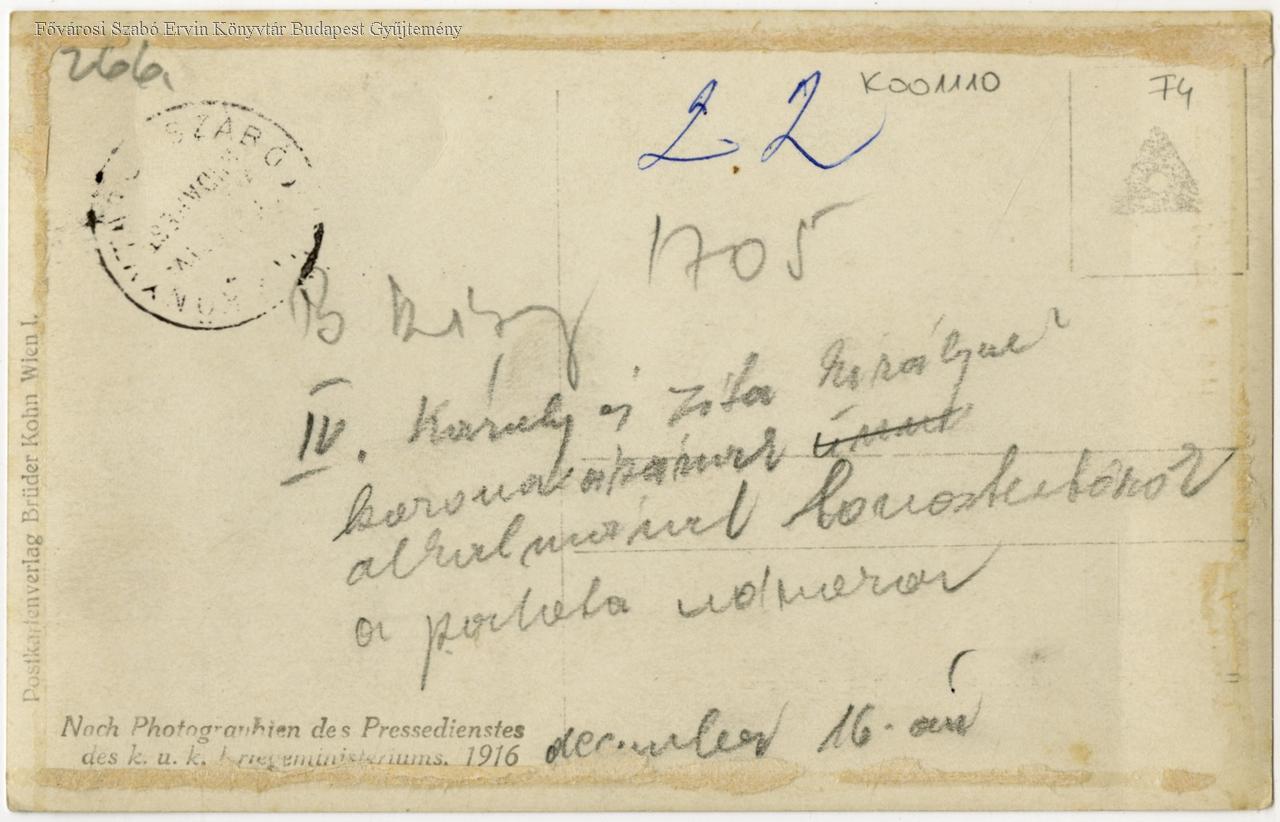 Fővárosi Szabó Ervin Könyvtár Budapest Gyűjtemény
266a
K001110
F4
2. 2
SZABÓ
KÖNYVTÁR
BUDAPEST
1705
IV. Károly és Zita királyné
koronázásának
alkalmával
a palota udvarán
december 16-án
Postkartenverlag Brüder Kohn Wien I.
Nach Photographien des Pressedienstes
des k. u. k. Kriegsministeriums. 1916